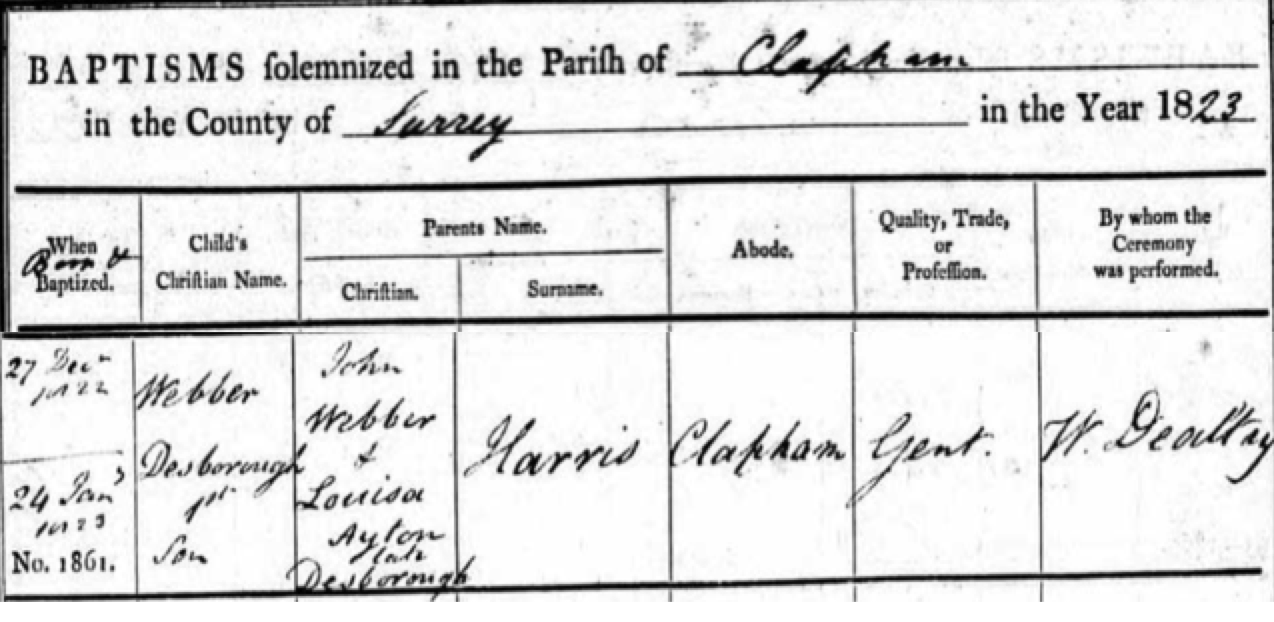 BAPTISMS solemnized in the Parish of Clapham
in the County of Surrey in the Year 1823
When
Born &
Baptized.
Child's
Christian Name.
Parents Name.
Christian.
Surname.
Abode.
Quality, Trade,
or
Profession.
By whom the
Ceremony
was performed.
27 Decr
1822
24 Jany
1823
No. 1861.
Webber
Desborough
1st
Son
John
Webber
&
Louisa
Ayton
late
Desborough
Harris
Clapham
Gent.
W. Dealtry